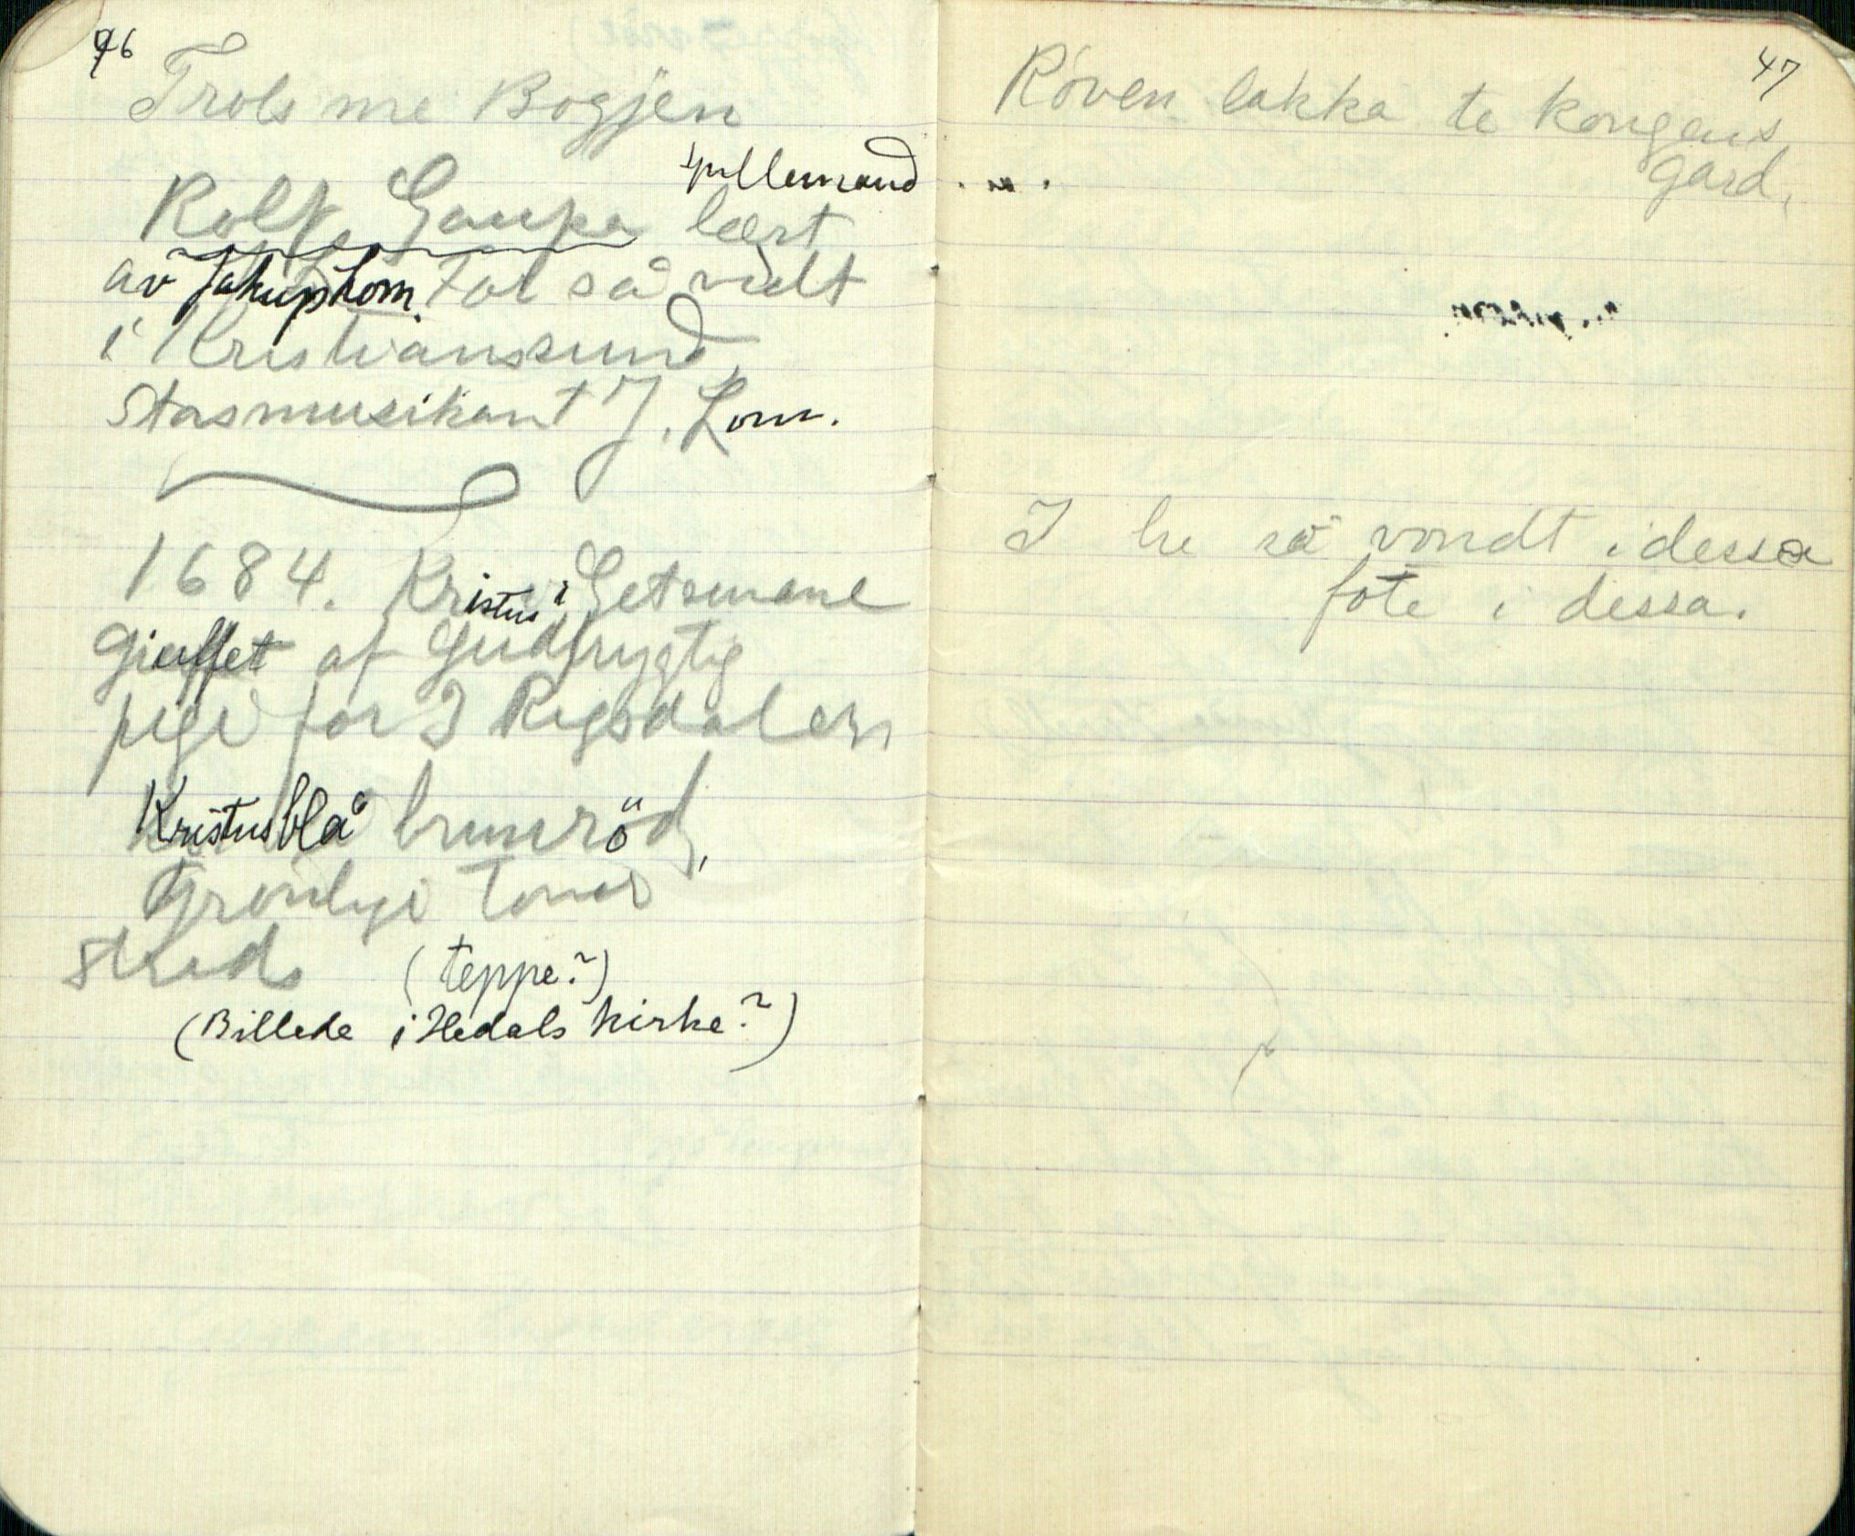 46
Trols me Bogjen
Rolf Gaupa lært
av Jakup Lom. For så vidt
i Kristianssund
Stasmusikant J. Lom.
1684. Kristus i Getsemane
Gieffet af Gudfrygtig
pige for 3 Rigsdalers
Kristus blå brunröd,
Grønlige toner
(teppe?)
(Billede i Hedals kirke?)
47
Röven lakka te kongens
gard,
I he så vondt i dessa
fote i dessa.